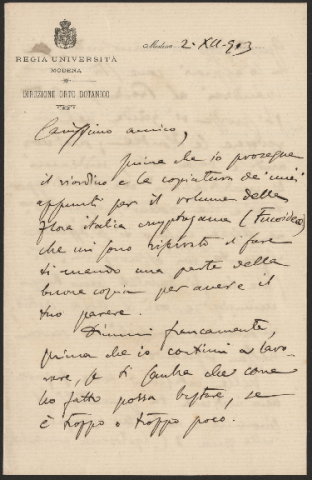 REGIA UNIVERSITÀ
MODENA
DIREZIONE ORTO BOTANICO
Modena 2-XII-903
Carissimo amico,
prima che io prosegua
il riordino e la copiatura de' miei
appunti per il volume della
Flora italica cryptogama (Fucoideae)
che mi sono riproposto di fare
ti mando una parte della
buona copia per avere il
tuo parere.
Dimmi francamente,
prima che io continui a lavo-
rare, se ti sembra che come
ho fatto possa bastare, se
è troppo o troppo poco.